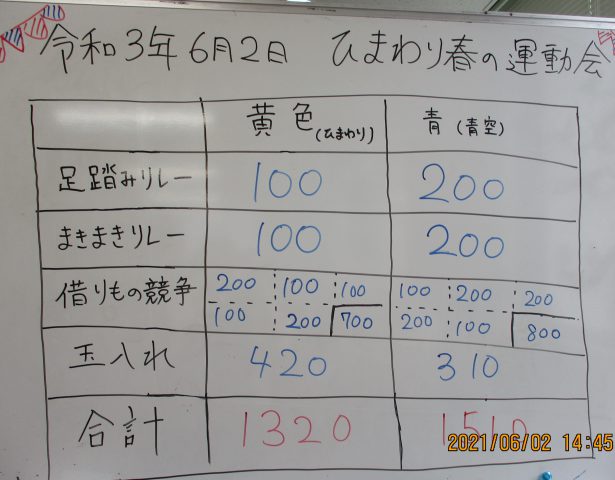 令和3年6月2日 ひまわり春の運動会
黄色(ひまわり) 青(青空)
足踏みリレー 100 200
まきまきリレー 100 200
借りもの競争 200 100 100 100 200 200
100 200 700 200 100 800
玉入れ 420 310
合計 1320 1510
2021/06/02 14:45